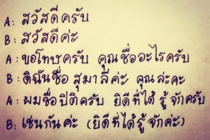 A: สวัสดีครับ
B: สวัสดีค่ะ
A: ขอโทษครับ คุณชื่ออะไรครับ
B: ดิฉันชื่อ สุมาลีค่ะ คุณล่ะคะ
A: ผมชื่อปิติครับ ยินดีที่ได้รู้จักครับ
B: เช่นกันค่ะ (ยินดีที่ได้รู้จักค่ะ)